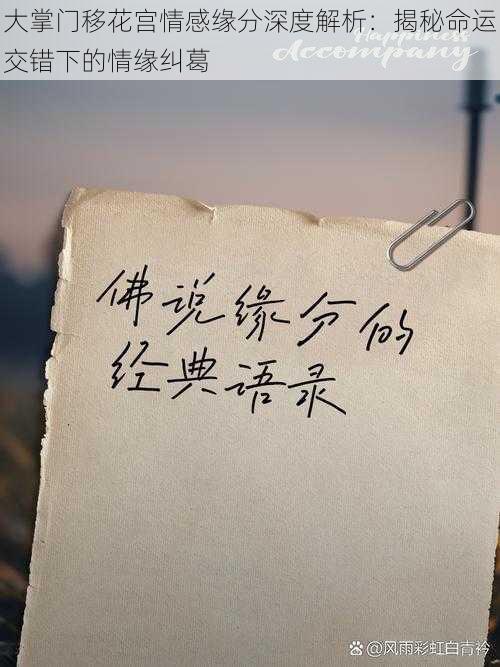 大掌门移花宫情感缘分深度解析：揭秘命运
交错下的情缘纠葛
Happiness
Accompany
佛说缘分的
经典语录
@风雨彩虹白青衿